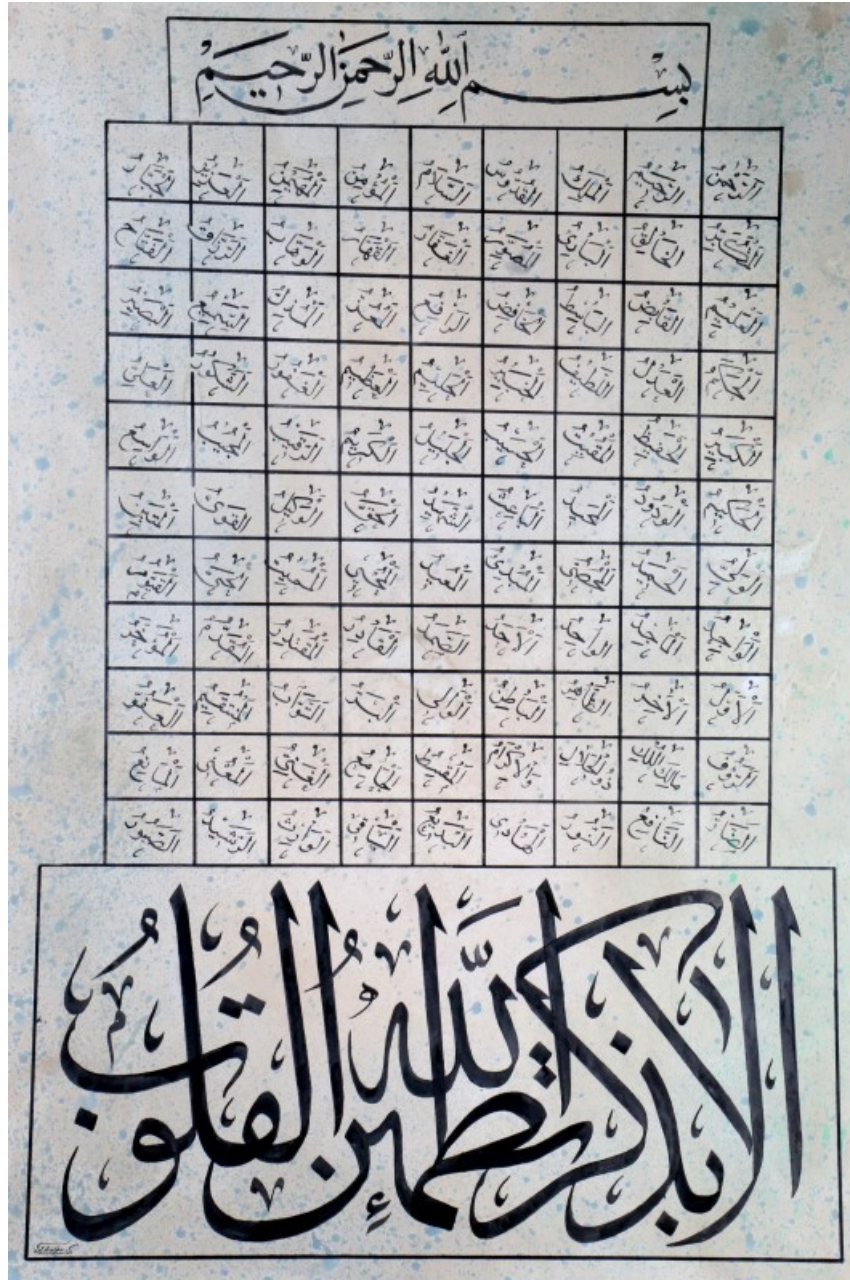 بِسْمِ اللهِ الرَّحْمَنِ الرَّحِيمِ
الرَّحْمنُ الرَّحِيمُ المَلِكُ القُدُّوسُ السَّلَامُ المُؤْمِنُ المُهَيْمِنُ العَزِيزُ الجَبَّارُ
المُتَكَبِّرُ الخَالِقُ البَارِئُ المُصَوِّرُ الغَفَّارُ القَهَّارُ الوَهَّابُ الرَّزَّاقُ الفَتَّاحُ
العَلِيمُ القَابِضُ البَاسِطُ الخَافِضُ الرَّافِعُ المُعِزُّ المُذِلُّ السَّمِيعُ البَصِيرُ
الحَكَمُ العَدْلُ اللَّطِيفُ الخَبِيرُ الحَلِيمُ العَظِيمُ الغَفُورُ الشَّكُورُ العَلِيُّ
الكَبِيرُ الحَفِيظُ المُقِيتُ الحَسِيبُ الجَلِيلُ الكَرِيمُ الرَّقِيبُ المُجِيبُ الوَاسِعُ
الحَكِيمُ الوَدُودُ المَجِيدُ البَاعِثُ الشَّهِيدُ الحَقُّ الوَكِيلُ القَوِيُّ المَتِينُ
الوَلِيُّ الحَمِيدُ المُحْصِي المُبْدِئُ المُعِيدُ المُحْيِي المُمِيتُ الحَيُّ القَيُّومُ
الوَاجِدُ المَاجِدُ الوَاحِدُ الأَحَدُ الصَّمَدُ القَادِرُ المُقْتَدِرُ المُقَدِّمُ المُؤَخِّرُ
الأَوَّلُ الآخِرُ الظَّاهِرُ البَاطِنُ البَرُّ التَّوَّابُ المُنْتَقِمُ العَفُوُّ
الرَّؤُوفُ مَالِكُ المُلْكِ ذُو الجَلَالِ وَالإِكْرَامِ المُقْسِطُ الجَامِعُ الغَنِيُّ المُغْنِي المَانِعُ
الضَّارُّ النَّافِعُ النُّورُ الهَادِي البَدِيعُ البَاقِي الوَارِثُ الرَّشِيدُ الصَّبُورُ
الا بِذِكْرِ اللهِ تَطْمَئِنُّ القُلُوبُ